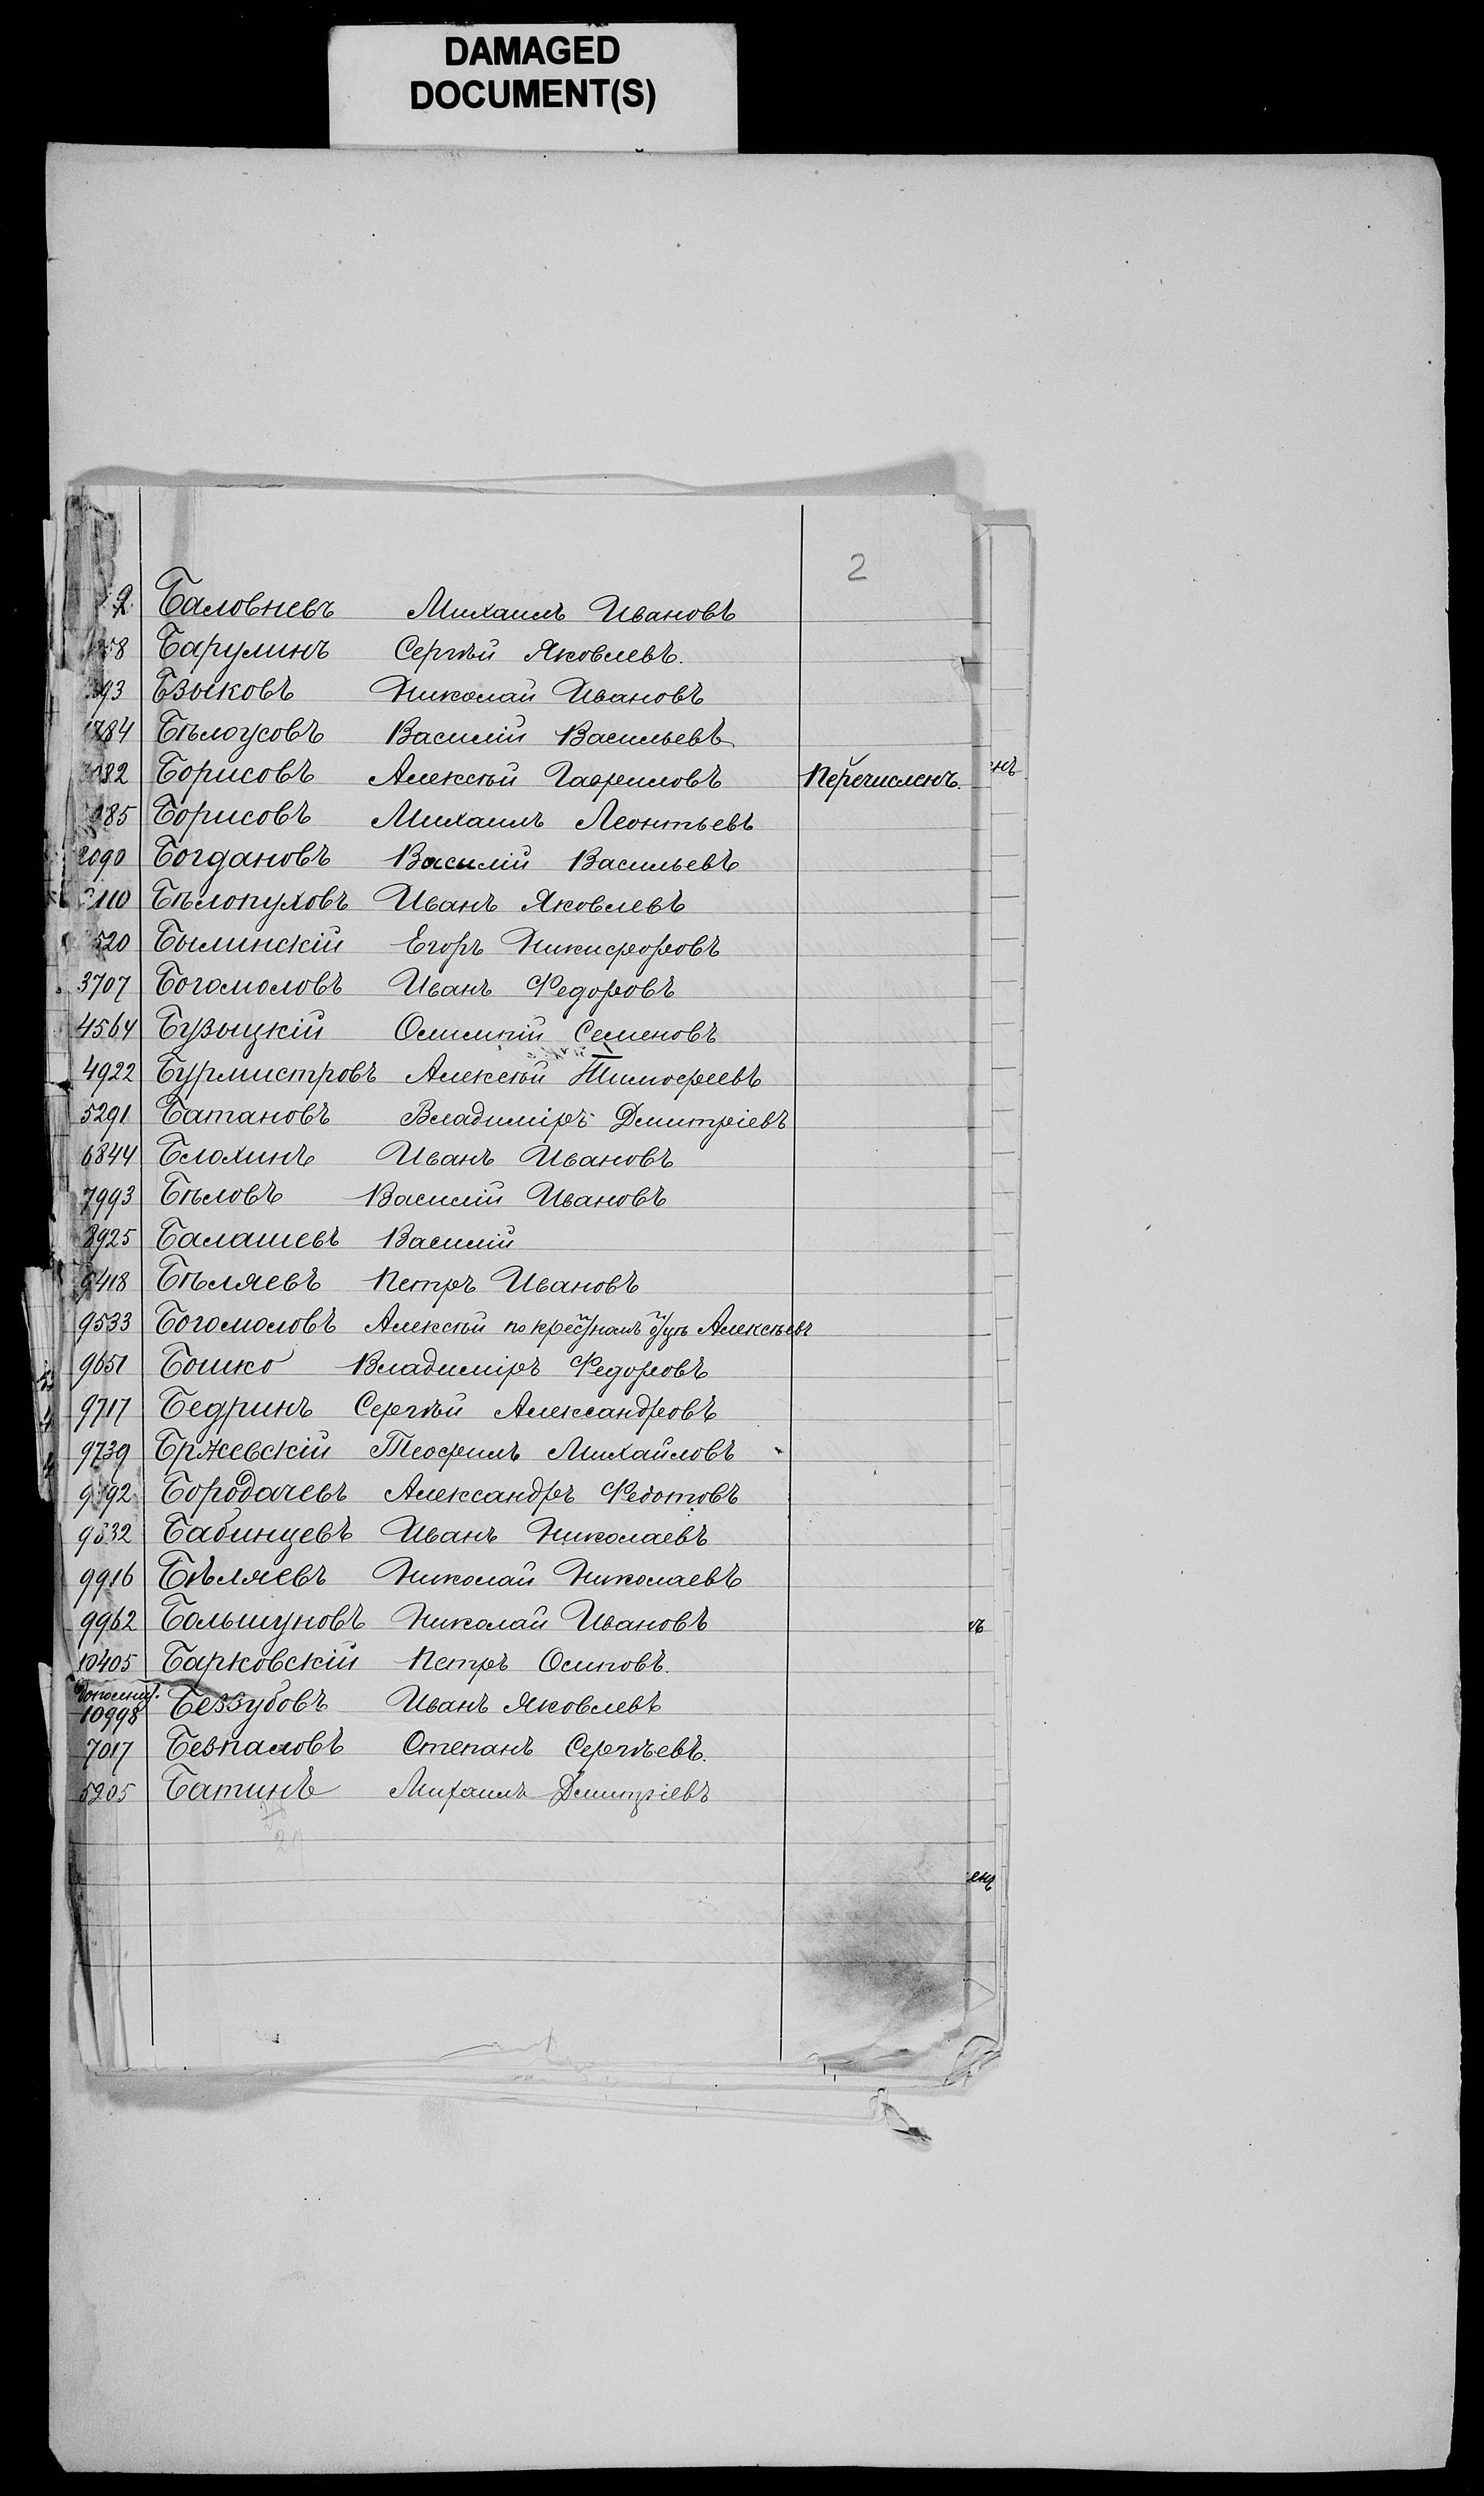 DAMAGED
DOCUMENT(S)
2
2 Баловневъ Михаилъ Ивановъ
58 Барулинъ Сергѣй Яковлевъ.
93 Бзыковъ Николай Ивановъ
1784 Бѣлоусовъ Василій Васильевъ
82 Борисовъ Алексѣй Гавриловъ Перечисленъ.
85 Борисовъ Михаилъ Леонтьевъ
2090 Богдановъ Василій Васильевъ
110 Бѣлопуховъ Иванъ Яковлевъ
520 Былинскій Егоръ Никифоровъ
3707 Богомоловъ Иванъ Федоровъ
4564 Бузыцкій Олимпій Семеновъ
4922 Бурмистровъ Алексѣй Тимофеевъ
5291 Батановъ Владиміръ Дмитріевъ
6844 Блохинъ Иванъ Ивановъ
7993 Бѣловъ Василій Ивановъ
8925 Балашевъ Василій
9418 Бѣляевъ Петръ Ивановъ
9533 Богомоловъ Алексѣй по крестном Алексѣевъ
9651 Бошко Владиміръ Федоровъ
9717 Бедринъ Сергѣй Александровъ
9739 Бржевскій Теофилъ Михайловъ
9792 Бородачевъ Александръ Федотовъ
9832 Бабинцевъ Иванъ Николаевъ
9916 Бѣляевъ Николай Николаевъ
9962 Большуновъ Николай Ивановъ
10405 Барковскій Петръ Осиповъ.
10998 Беззубовъ Иванъ Яковлевъ
7017 Безпаловъ Степанъ Сергѣевъ.
5205 Батинъ Михаилъ Дмитріевъ